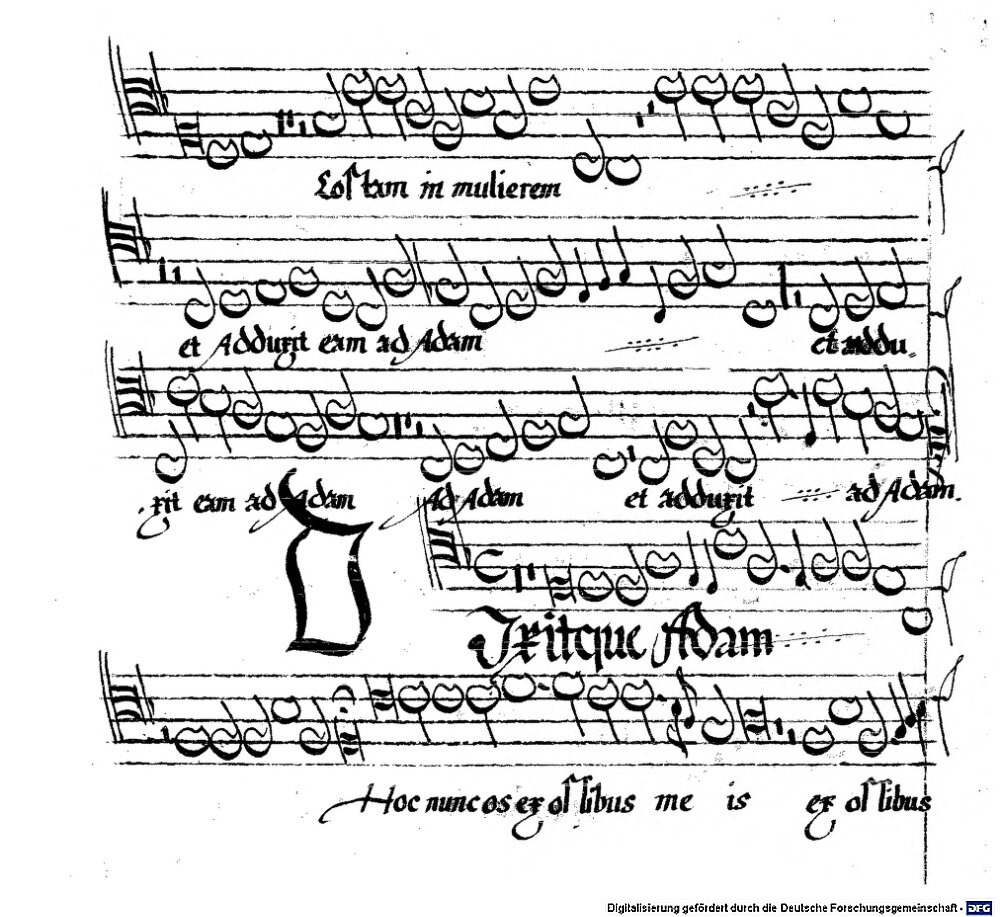 Costam in mulierem
et Adduxit eam ad Adam et addu
xit eam ad Adam Ad Adam et adduxit ad Adam.
Dixitque Adam
Hoc nunc os ex ossibus me is ex ossibus
Digitalisierung gefördert durch die Deutsche Forschungsgemeinschaft - DFG